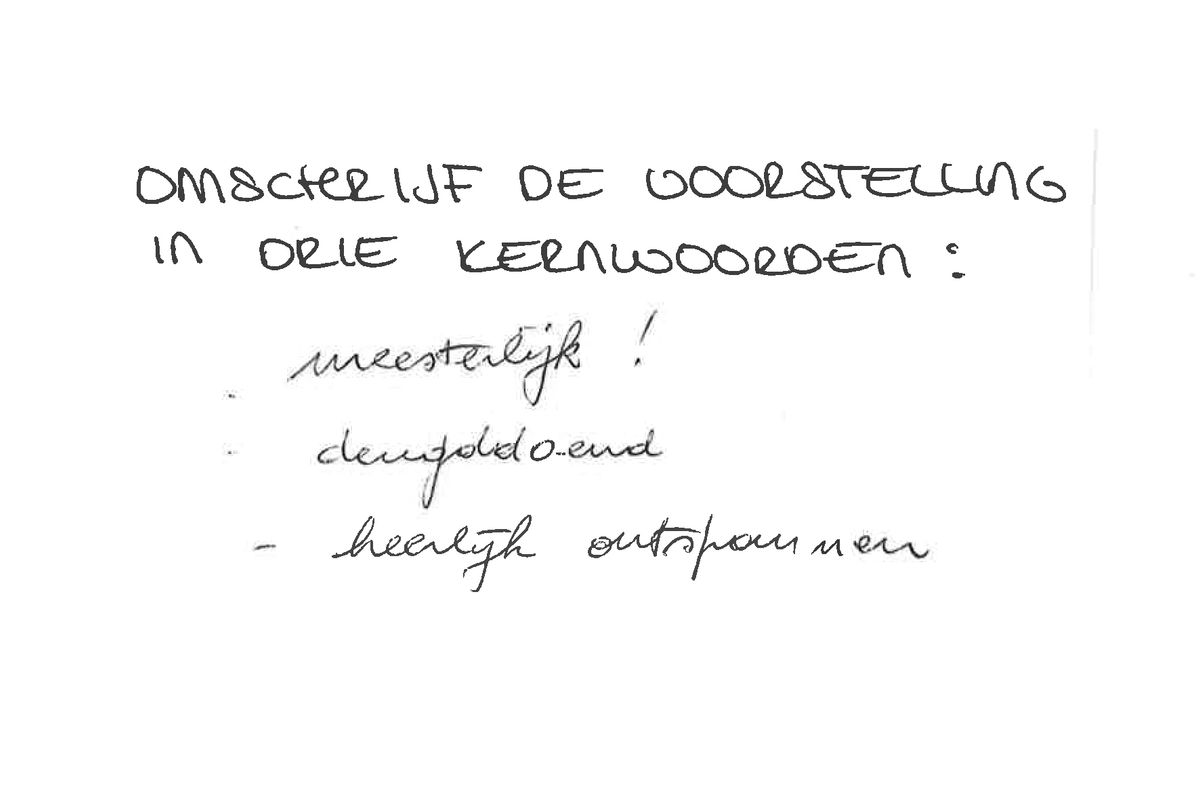 OMSCHRIJF DE VOORSTELLING
IN DRIE KERNWOORDEN :
- meesterlijk !
- deugddoend
- heerlijk ontspannen